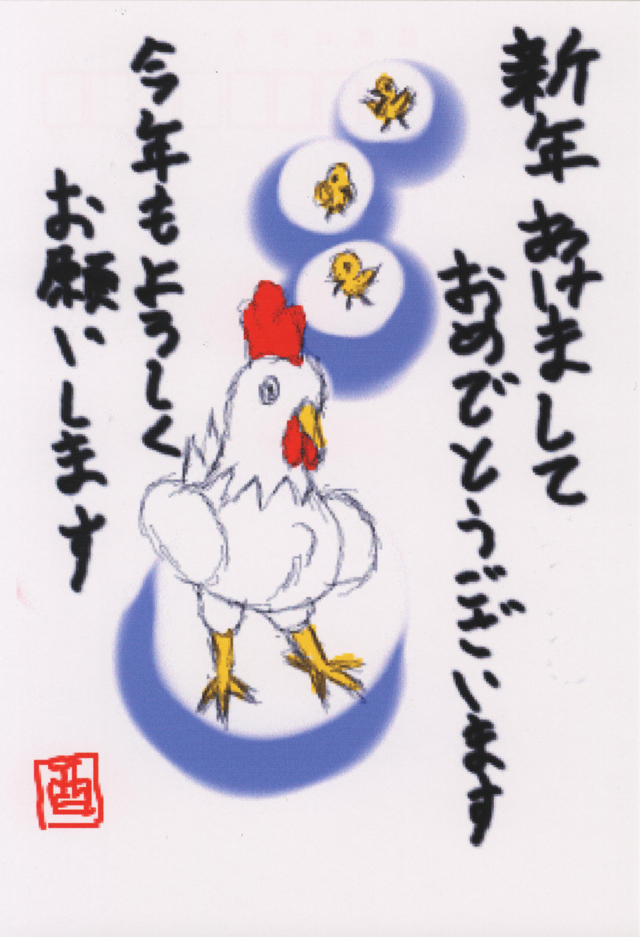 新年 あけまして
おめでとうございます
今年もよろしく
お願いします
酉